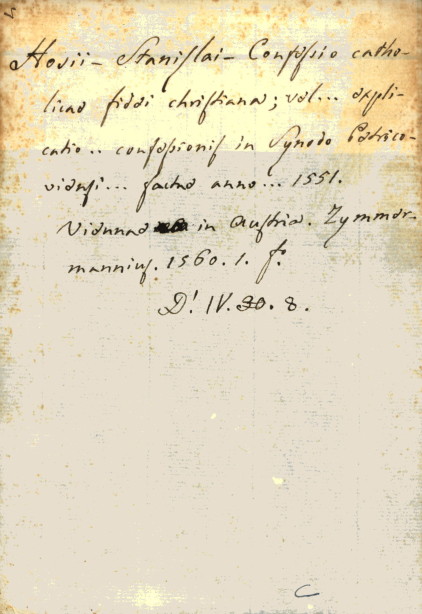 Hosii - Stanislai - Confessio catho-
licae fidei christiana; vel... expli-
catio .. confessionis in Synodo Petrico-
viensi... factae anno... 1551.
Viennae in Austria. Zymmer-
mannius. 1560. 1. f.º
D! IV. 30. 8.
C